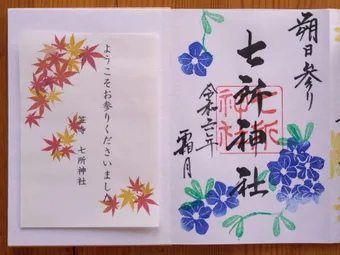 ようこそお参りくださいました
笠寺 七所神社
朔日参り
七所神社
七所神社
令和六年
霜月